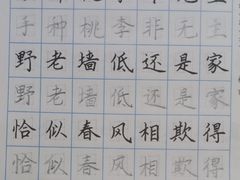 手种桃李非无主
野老墙低还是家
野老墙低还是家
恰似春风相欺得
恰似春风相欺得